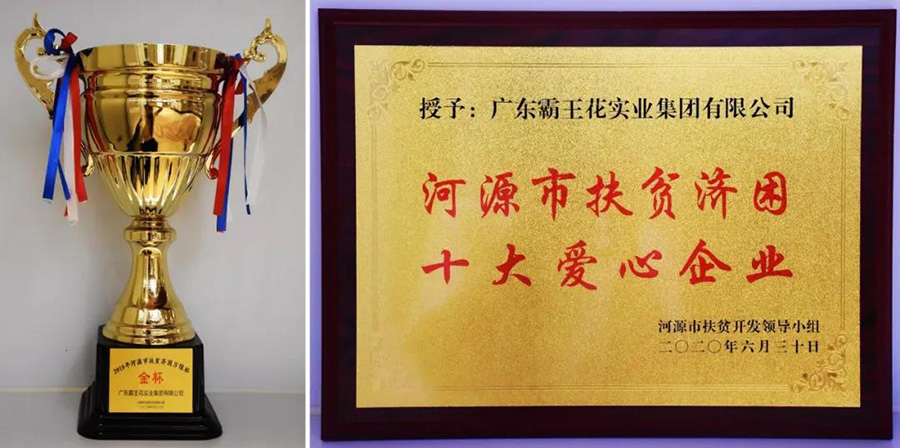 河源市扶贫济困万绿杯
金杯
广东霸王花实业集团有限公司
授予：广东霸王花实业集团有限公司
河源市扶贫济困
十大爱心企业
河源市扶贫开发领导小组
二〇二〇年六月三十日